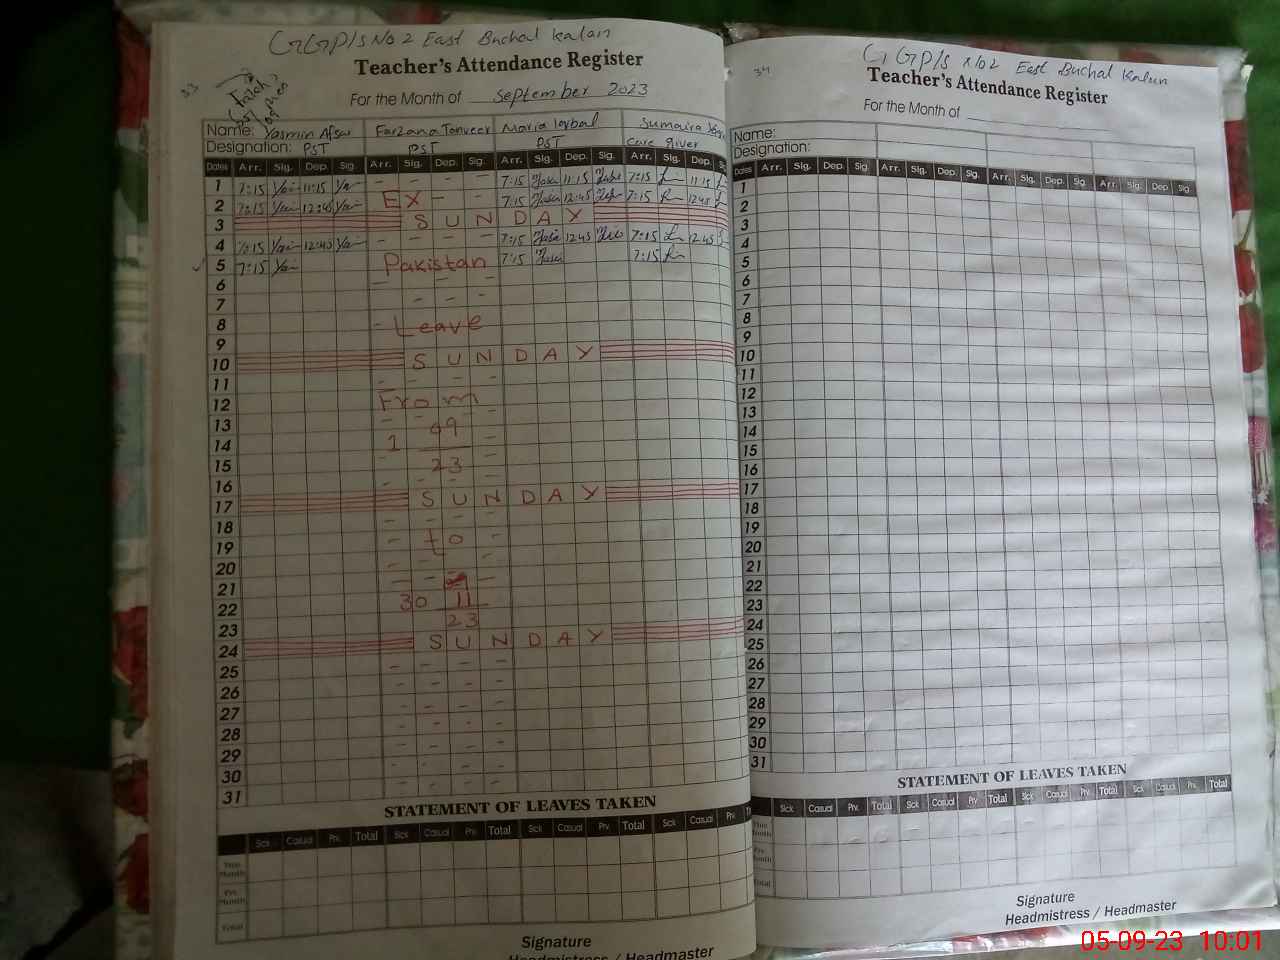 33
GGP/S No 2 East Buchal Kalan
Teacher's Attendance Register
For the Month of September 2023
Name: Yasmin Afsar Farzana Tanveer Maria Iqbal Sumaira
Designation: PST PST PST Care giver
Dates Arr. Sig. Dep. Sig. Arr. Sig. Dep. Sig. Arr. Sig. Dep. Sig. Arr. Sig. Dep.
1 7:15 11:15 - - - - 7:15 11:15 7:15 11:15
2 7:15 12:45 EX - 7:15 12:45 7:15 12:45
3 SUNDAY
4 7:15 12:45 - - - - 7:15 12:45 7:15 12:45
5 7:15 Pakistan 7:15 7:15
6
7
8 Leave
9
10 SUNDAY
11
12 From
13 09
14 1
15 23
16
17 SUNDAY
18
19 to
20
21
22 30 11
23 23
24 SUNDAY
25
26
27
28
29
30
31
STATEMENT OF LEAVES TAKEN
Sick Casual Prv. Total Sick Casual Prv. Total Sick Casual Prv. Total Sick Casual Prv.
This Month
Pre. Month
Total
Signature
Headmistress / Headmaster
34
GGP/S No2 East Buchal Kalan
Teacher's Attendance Register
For the Month of
Name:
Designation:
Dates Arr. Sig. Dep. Sig. Arr. Sig. Dep. Sig. Arr. Sig. Dep. Sig. Arr. Sig. Dep. Sig.
1
2
3
4
5
6
7
8
9
10
11
12
13
14
15
16
17
18
19
20
21
22
23
24
25
26
27
28
29
30
31
STATEMENT OF LEAVES TAKEN
Sick Casual Prv. Total Sick Casual Prv. Total Sick Casual Prv. Total Sick Casual Prv. Total
This Month
Pre. Month
Total
Signature
Headmistress / Headmaster
05-09-23 10:01